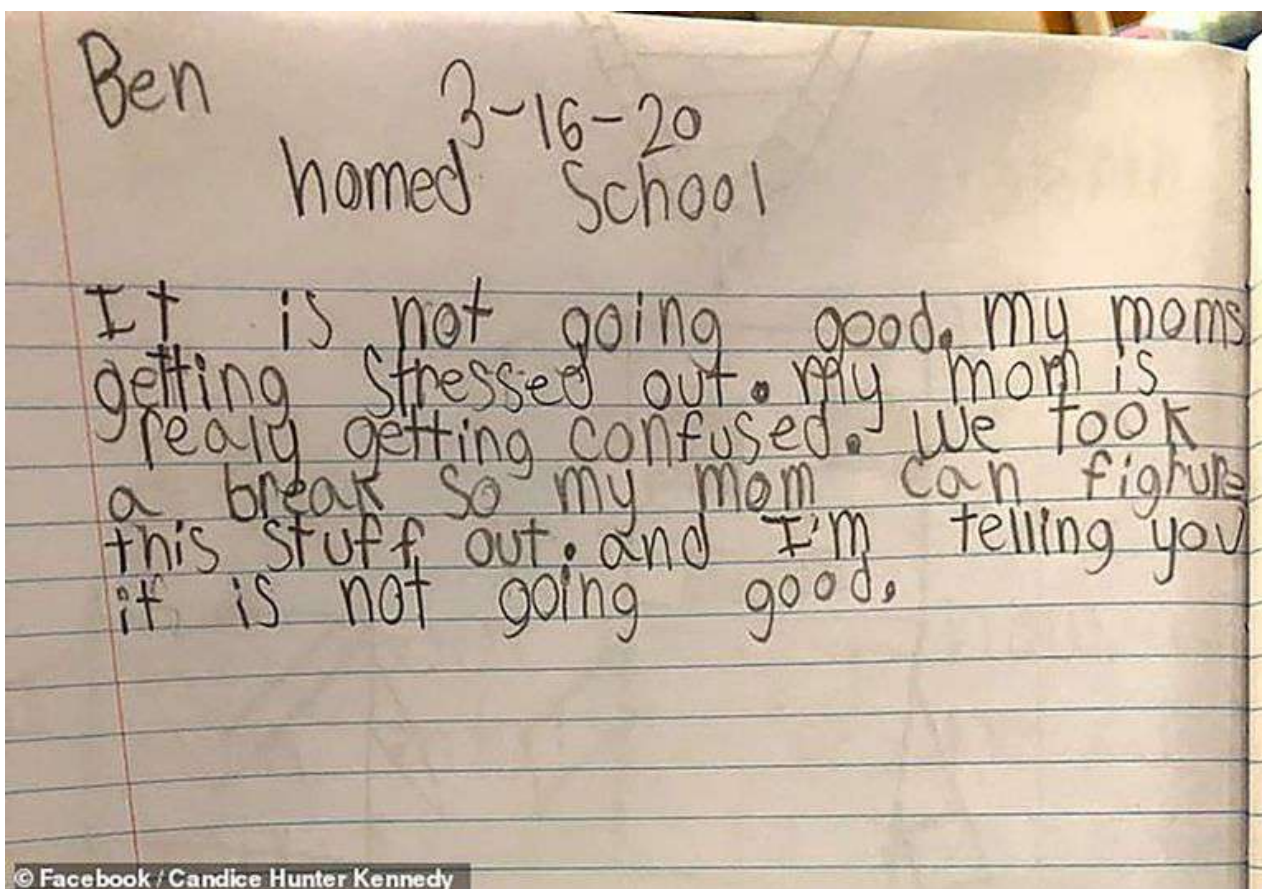 Ben
3-16-20
homed School
It is not going good. my moms
getting stressed out. my mom is
realy getting confused. we took
a break so my mom can fighure
this stuff out. and I'm telling you
it is not going good.
© Facebook / Candice Hunter Kennedy